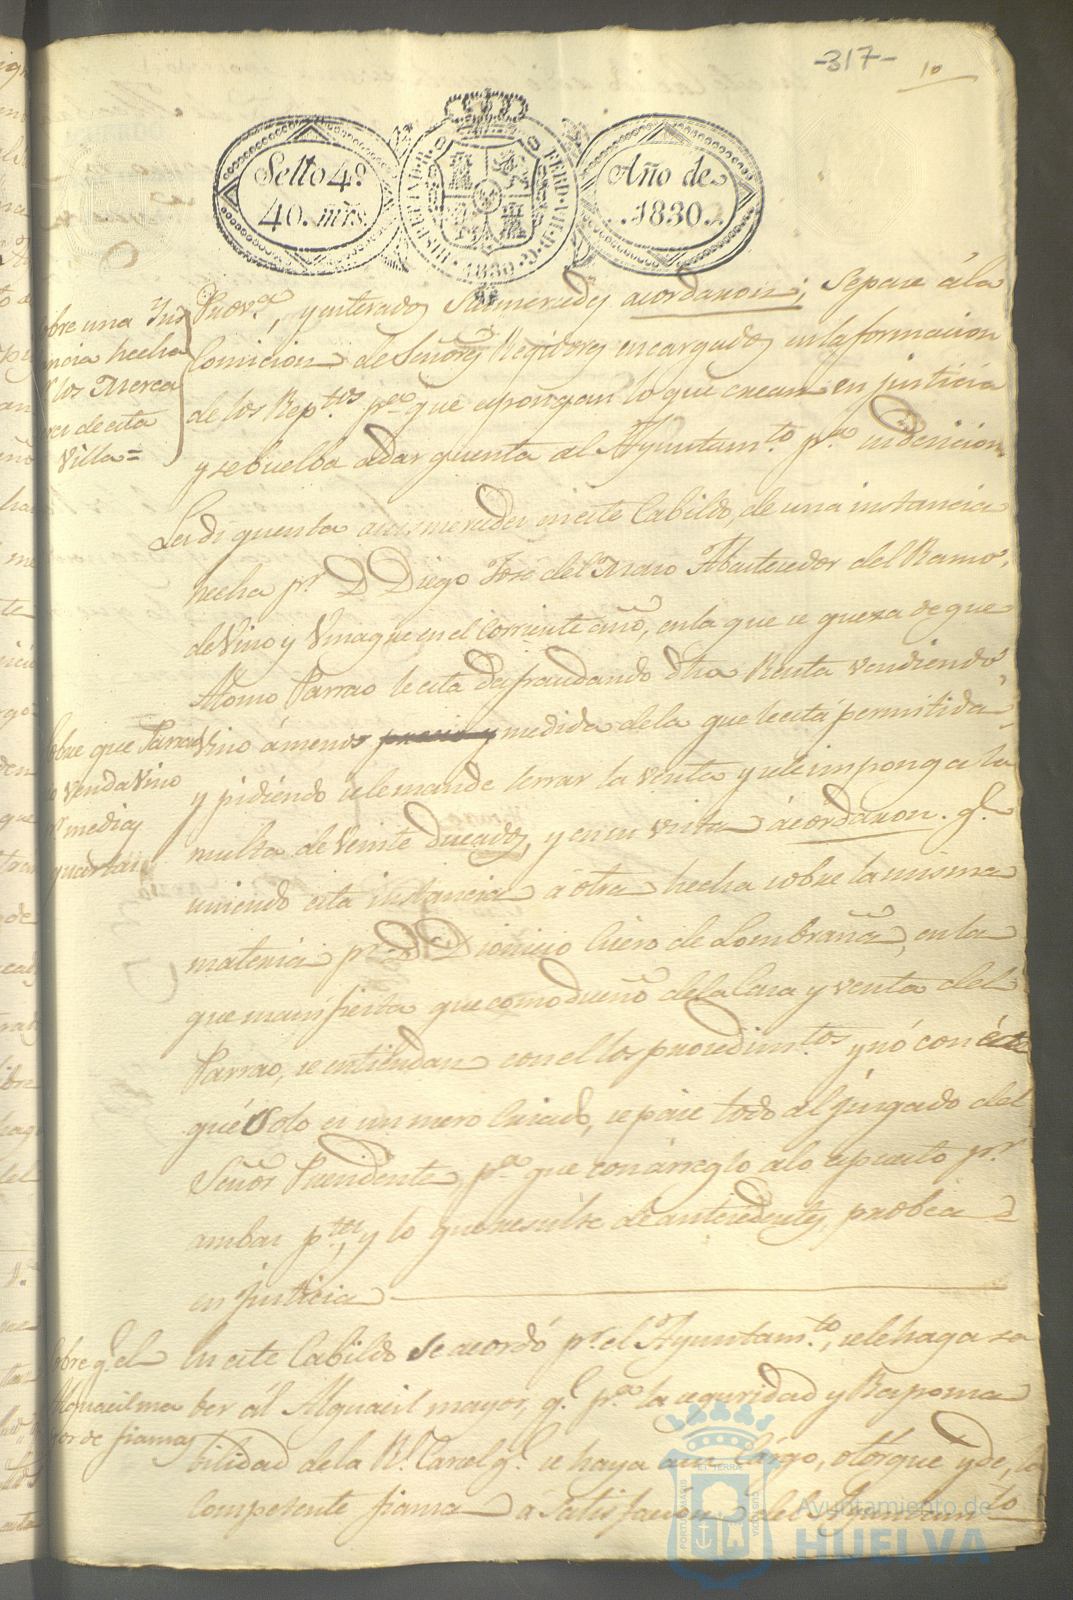 -317-
10
Sello 4º.
40. mrs.
HISP. ET IND. R.
FERD. VII. D. G.
1830
Año de
1830.
sobre una Ins
tancia hecha
pr. los Merca
deres de esta
Villa=
y enterados Sus mercedes acordaron; Se pase á la
Comicion de Señores Regidores encargados en la formacion
de los Rep.tos pa. que expongan lo que crean en justicia
y se buelba a dar quenta al Ayuntam.to pa. su decicion
Les di quenta a sus mercedes en este Cabildo, de una instancia
hecha pr. D. Diego José del Abastecedor del Ramo,
de Vino y Vinagre en el corriente año, en la que se quexa de que
Parrao le está defraudando dha Renta vendiendo
Vino á menos precio y medida de la que le está permitida,
y pidiendo se le mande serrar la venta y se le imponga la
multa de veinte ducados, y en su vista acordaron. q.e
uniendo esta instancia á otra hecha sobre la misma
materia pr. D. Dionicio de Lombraña, en la
que manifiesta que como dueño de la Casa y venta del
Parrao, se entiendan con el los procedim.tos y nó con este
qué Solo es un mero Criado, se pase todo al Juzgado del
Señor Precidente, pa. que con árreglo a lo expuesto pr.
ambas ptes., y lo que resulte de antecedentes, probea
en Justicia
sobre que Parrao
no venda Vino
pr. medias
quartas
sobre q.e el
Alguacil ma
yor de fiansa
En este Cabildo se acordó pr. el Ayuntam.to, se le haga sa
ber ál Alguacil mayor, q.e pa. la seguridad y Responsa
bilidad de la Rl. Carcel q.e se haya a su cargo, otorgue y dé, la
competente fiansa á satisfacion del Ayuntam.to
PORTUS MARIS
ET TERRAE
CUSTODIA
Ayuntamiento de
HUELVA